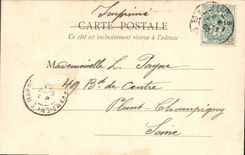 Imprimé
CARTE POSTALE
Ce côté est exclusivement réservé à l'adresse
Mademoiselle L. Payne
49 Bd. du Centre
Plant Champigny
Seine